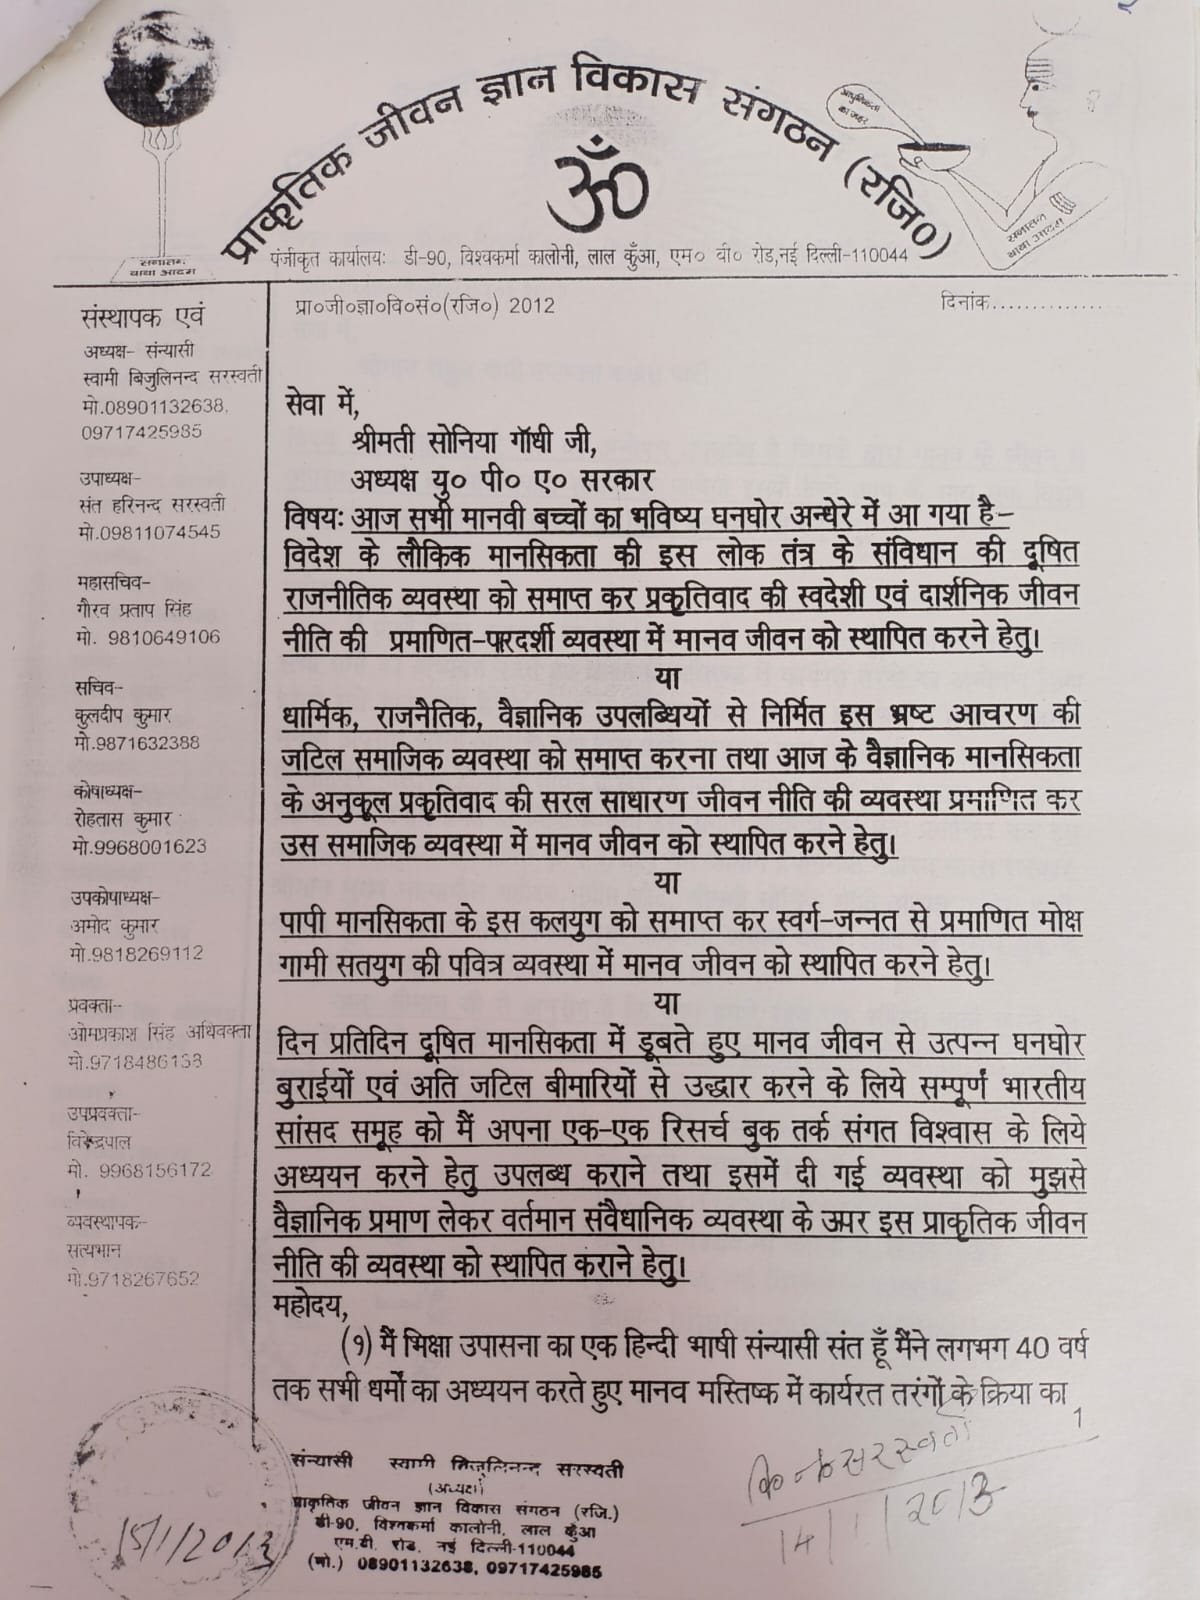 प्राकृतिक जीवन ज्ञान विकास संगठन (रजि०)
ॐ
आधुनिकता
का जहर
सनातन
बाबा आदम
सनातन
बाबा आदम
पंजीकृत कार्यालयः डी-90, विश्वकर्मा कालोनी, लाल कुँआ, एम० बी० रोड,नई दिल्ली-110044
प्रा०जी०ज्ञा०वि०सं०(रजि०) 2012
दिनांक..............
संस्थापक एवं
अध्यक्ष- संन्यासी
स्वामी बिजुलिनन्द सरस्वती
मो.08901132638,
09717425985
उपाध्यक्ष-
संत हरिनन्द सरस्वती
मो.09811074545
महासचिव-
गौरव प्रताप सिंह
मो. 9810649106
सचिव-
कुलदीप कुमार
मो.9871632388
कोषाध्यक्ष-
रोहतास कुमार
मो.9968001623
उपकोषाध्यक्ष-
अमोद कुमार
मो.9818269112
प्रवक्ता-
ओमप्रकाश सिंह अधिवक्ता
मो.9718486133
उपप्रवक्ता-
विरेन्द्रपाल
मो. 9968156172
व्यवस्थापक-
सत्यभान
मो.9718267652
सेवा में,
श्रीमती सोनिया गाँधी जी,
अध्यक्ष यु० पी० ए० सरकार
विषयः आज सभी मानवी बच्चों का भविष्य घनघोर अन्धेरे में आ गया है–
विदेश के लौकिक मानसिकता की इस लोक तंत्र के संविधान की दूषित
राजनीतिक व्यवस्था को समाप्त कर प्रकृतिवाद की स्वदेशी एवं दार्शनिक जीवन
नीति की प्रमाणित-पारदर्शी व्यवस्था में मानव जीवन को स्थापित करने हेतु।
या
धार्मिक, राजनैतिक, वैज्ञानिक उपलब्धियों से निर्मित इस भ्रष्ट आचरण की
जटिल समाजिक व्यवस्था को समाप्त करना तथा आज के वैज्ञानिक मानसिकता
के अनुकूल प्रकृतिवाद की सरल साधारण जीवन नीति की व्यवस्था प्रमाणित कर
उस समाजिक व्यवस्था में मानव जीवन को स्थापित करने हेतु।
या
पापी मानसिकता के इस कलयुग को समाप्त कर स्वर्ग-जन्नत से प्रमाणित मोक्ष
गामी सतयुग की पवित्र व्यवस्था में मानव जीवन को स्थापित करने हेतु।
या
दिन प्रतिदिन दूषित मानसिकता में डूबते हुए मानव जीवन से उत्पन्न घनघोर
बुराईयों एवं अति जटिल बीमारियों से उद्धार करने के लिये सम्पूर्ण भारतीय
सांसद समूह को मैं अपना एक-एक रिसर्च बुक तर्क संगत विश्वास के लिये
अध्ययन करने हेतु उपलब्ध कराने तथा इसमें दी गई व्यवस्था को मुझसे
वैज्ञानिक प्रमाण लेकर वर्तमान संवैधानिक व्यवस्था के ऊपर इस प्राकृतिक जीवन
नीति की व्यवस्था को स्थापित कराने हेतु।
महोदय,
(१) मैं भिक्षा उपासना का एक हिन्दी भाषी संन्यासी संत हूँ मैंने लगभग 40 वर्ष
तक सभी धर्मों का अध्ययन करते हुए मानव मस्तिष्क में कार्यरत तरंगों के क्रिया का
1
संन्यासी स्वामी बिजुलिनन्द सरस्वती
(अध्यक्ष)
प्राकृतिक जीवन ज्ञान विकास संगठन (रजि.)
डी-90, विश्वकर्मा कालोनी, लाल कुँआ
एम.बी. रोड, नई दिल्ली-110044
(मो.) 08901132638, 09717425985
15/1/2013
सरस्वती
14/1/2013